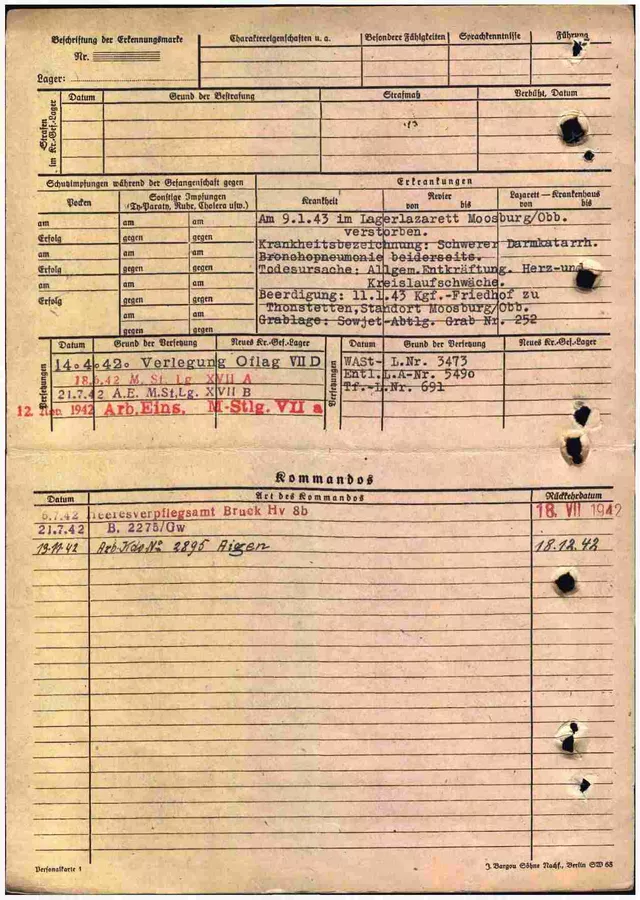 Beschriftung der Erkennungsmarke
Nr.
Lager:
Charaktereigenschaften u. a.
Besondere Fähigkeiten
Sprachkenntnisse
Führung
Strafen im Kr.-Gef.-Lager
Datum
Grund der Bestrafung
Strafmaß
Verbüßt, Datum
Schutzimpfungen während der Gefangenschaft gegen
Erkrankungen
Pocken
Sonstige Impfungen
(Ty-Paraty, Ruhr, Cholera usw.)
Krankheit
Revier
von bis
Lazarett — Krankenhaus
von bis
am am am
Erfolg gegen gegen
am am am
Erfolg gegen gegen
am am am
Erfolg gegen gegen
am am am
Erfolg gegen gegen
am am
gegen gegen
Am 9.1.43 im Lagerlazarett Moosburg/Obb.
verstorben.
Krankheitsbezeichnung: Schwerer Darmkatarrh.
Bronchopneumonie beiderseits.
Todesursache: Allgem.Entkräftung. Herz-und
Kreislaufschwäche.
Beerdigung: 11.1.43 Kgf.-Friedhof zu
Thonstetten,Standort Moosburg/Obb.
Grablage: Sowjet-Abtlg. Grab Nr. 252
Versetzungen
Datum
Grund der Versetzung
Neues Kr.-Gef.-Lager
14.4.42. Verlegung Oflag VII D
18.6.42 M. St. Lg. XVII A
21.7.42 A.E. M.St.Lg. XVII B
12. Nov. 1942 Arb.Eins. M-Stlg. VII a
Versetzungen
Datum
Grund der Versetzung
Neues Kr.-Gef.-Lager
WASt- L.Nr. 3473
Entl.L.A-Nr. 5490
Tf.-L.Nr. 691
Kommandos
Datum
Art des Kommandos
Rückkehrdatum
6.7.42 Heeresverpflegsamt Bruck Hv 8b 18. VII 1942
21.7.42 B. 2275/Gw
13.11.42 Arb.Kdo No 2895 Aigen 18.12.42
Personalkarte 1
J. Bargou Söhne Nachf., Berlin SW 68